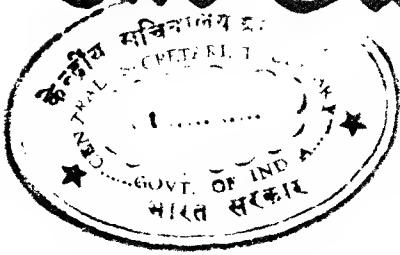 केन्द्रीय सचिवालय
CENTRAL SECRETARI
GOVT. OF INDIA
भारत सरकार